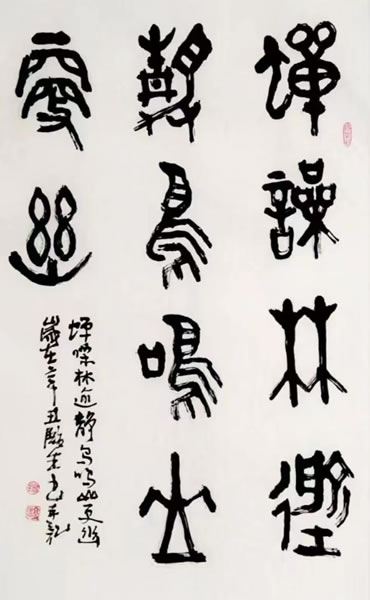 蟬譟林逕
靜鳥鳴山
更幽
蟬噪林逾靜鳥鳴山更幽
歲在辛丑